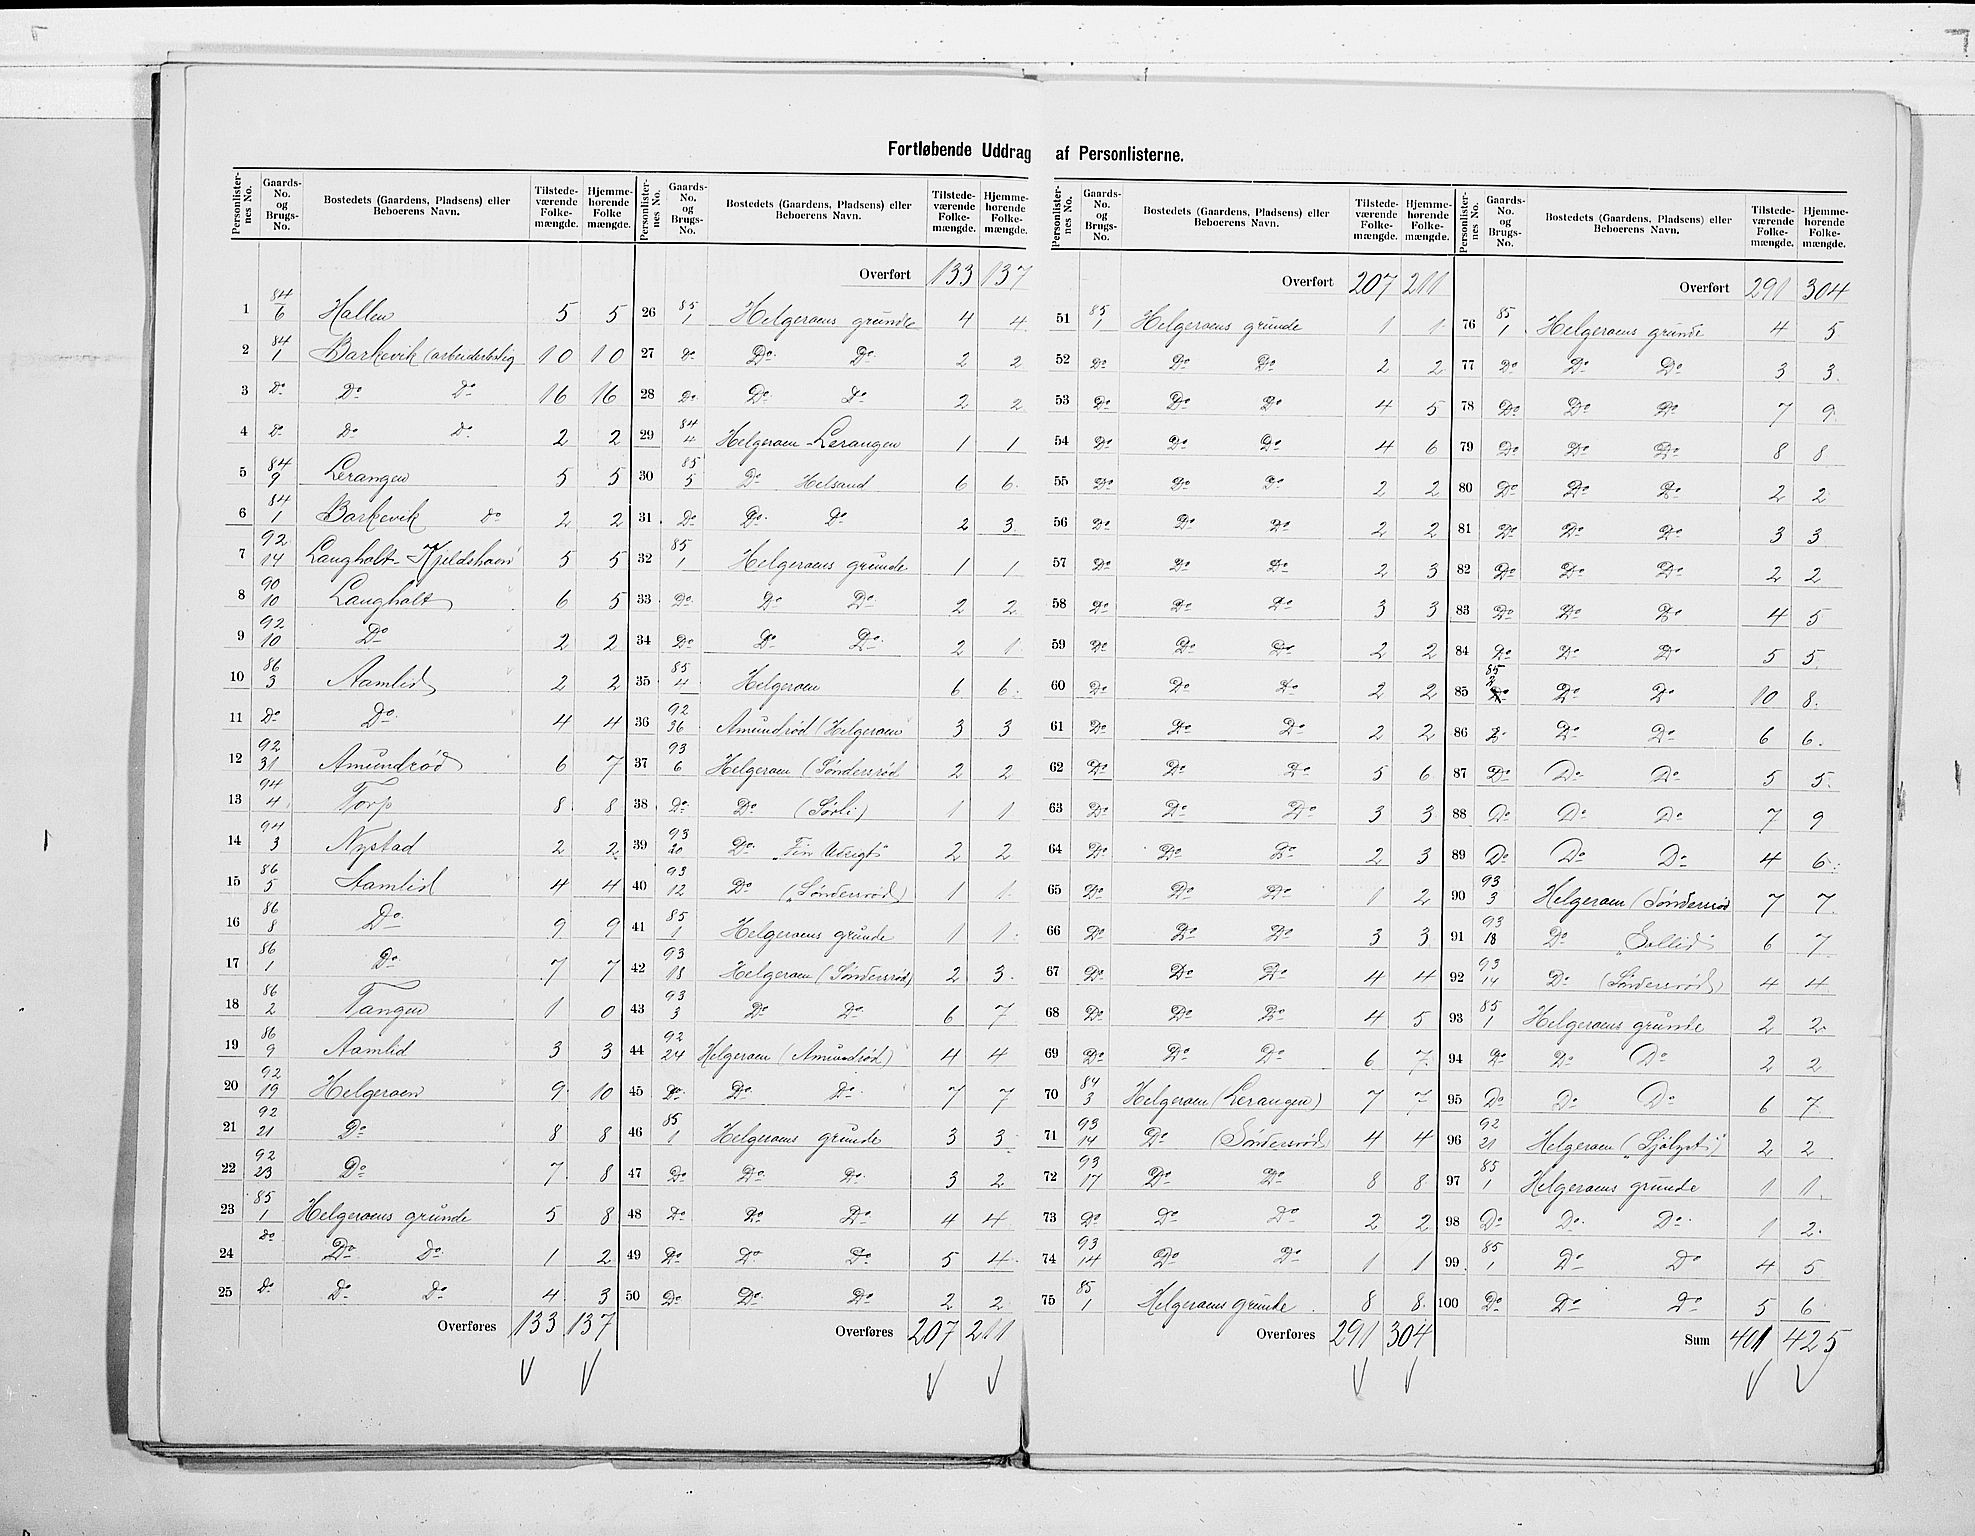 Fortløbende Uddrag af Personlisterne.
Personlister-nes No. | Gaards-No. og Brugs-No. | Bostedets (Gaardens, Pladsens) eller Beboerens Navn. | Tilstede-værende Folke-mængde. | Hjemme-hørende Folke mængde.
1 84/6 Hallen 5 5
2 84/1 Barkevik (arbeiderbolig 10 10
3 Do Do Do 16 16
4 Do Do Do 2 2
5 84/9 Lerangen 5 5
6 84/1 Barkevik Do 2 2
7 92/14 Langholt-Kjeldshavn 5 5
8 90/10 Langholt 6 5
9 92/10 Do 2 2
10 86/3 Aamlid 2 2
11 Do Do 4 4
12 92/31 Amundrød 6 7
13 94/4 Torp 8 8
14 94/3 Nystad 2 2
15 86/5 Aamlid 4 4
16 86/8 Do 9 9
17 86/1 Do 7 7
18 86/2 Tangen 1 0
19 86/9 Aamlid 3 3
20 92/19 Helgeroen 9 10
21 92/21 Do 8 8
22 92/23 Do 7 8
23 85/1 Helgeroens grunde 5 8
24 Do Do Do 1 2
25 Do Do Do 4 3
Overføres 133 137
Personlister-nes No. | Gaards-No. og Brugs-No. | Bostedets (Gaardens, Pladsens) eller Beboerens Navn. | Tilstede-værende Folke-mængde. | Hjemme-hørende Folke-mængde.
Overført 133 137
26 85/1 Helgeroens grunde 4 4
27 Do Do Do 2 2
28 Do Do Do 2 2
29 84/4 Helgeroen-Lerangen 1 1
30 85/5 Do Helsand 6 6
31 Do Do Do 2 3
32 85/1 Helgeroens grunde 1 1
33 Do Do Do 2 2
34 Do Do Do 2 1
35 85/4 Helgeroen 6 6
36 92/36 Amundrød (Helgeroen 3 3
37 93/6 Helgeroen (Søndersrød 2 2
38 Do Do (Sørli) 1 1
39 93/20 Do 2 2
40 93/12 Do (Søndersrød) 1 1
41 85/1 Helgeroens grunde 1 1
42 93/18 Helgeroen (Søndersrød) 2 3
43 93/3 Do Do 6 7
44 92/24 Helgeroen (Amundrød) 4 4
45 Do Do Do 7 7
46 85/1 Helgeroens grunde 3 3
47 Do Do Do 3 2
48 Do Do Do 4 4
49 Do Do Do 5 4
50 Do Do Do 2 2
Overføres 207 211
Personlister-nes No. | Gaards-No. og Brugs-No. | Bostedets (Gaardens, Pladsens) eller Beboerens Navn. | Tilstede-værende Folke-mængde. | Hjemme-hørende Folke-mængde.
Overført 207 211
51 85/1 Helgeroens grunde 1 1
52 Do Do Do 2 2
53 Do Do Do 4 5
54 Do Do Do 4 6
55 Do Do Do 2 2
56 Do Do Do 2 2
57 Do Do Do 2 3
58 Do Do Do 3 3
59 Do Do Do 2 2
60 Do Do Do 2 2
61 Do Do Do 2 2
62 Do Do Do 5 6
63 Do Do Do 3 3
64 Do Do Do 2 3
65 Do Do Do 1 2
66 Do Do Do 3 3
67 Do Do Do 4 4
68 Do Do Do 4 5
69 Do Do Do 6 7
70 84/3 Helgeroen (Lerangen) 7 7
71 93/14 Do (Søndersrød) 4 4
72 93/17 Do Do 8 8
73 Do Do Do 2 2
74 93/14 Do Do 1 1
75 85/1 Helgeroens grunde 8 8
Overføres 291 304
Personlister-nes No. | Gaards-No. og Brugs-No. | Bostedets (Gaardens, Pladsens) eller Beboerens Navn. | Tilstede-værende Folke-mængde. | Hjemme-hørende Folke-mængde.
Overført 291 304
76 85/1 Helgeroens grunde 4 5
77 Do Do Do 3 3
78 Do Do Do 7 9
79 Do Do Do 8 8
80 Do Do Do 2 2
81 Do Do Do 3 3
82 Do Do Do 2 2
83 Do Do Do 4 5
84 Do Do Do 5 5
85 85/2 Do Do 10 8
86 Do Do Do 6 6
87 Do Do Do 5 5
88 Do Do Do 7 9
89 Do Do Do 4 6
90 93/3 Helgeroen (Søndersrød 7 7
91 93/18 Do "Sollid" 6 7
92 93/14 Do (Søndersrød) 4 4
93 85/1 Helgeroens grunde 2 2
94 Do Do Do 2 2
95 Do Do Do 6 7
96 92/21 Helgeroen ("Sjølyst") 2 2
97 85/1 Helgeroens grunde 1 1
98 Do Do Do 1 2
99 85/1 Do Do 4 5
100 Do Do Do 5 6
Sum 401 425